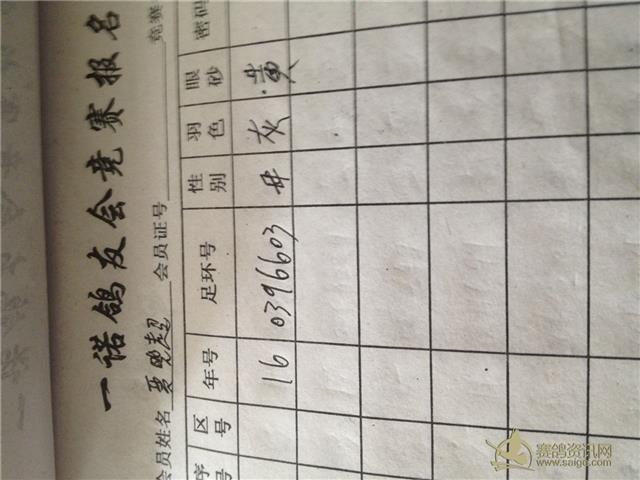 一诺鸽友会竞赛报名
会员姓名 夏晓超 会员证号 竞赛
序号 区号 年号 足环号 性别 羽色 眼砂 密码
16 0396603 灰 黄
赛鸽资讯网
www.saige.com